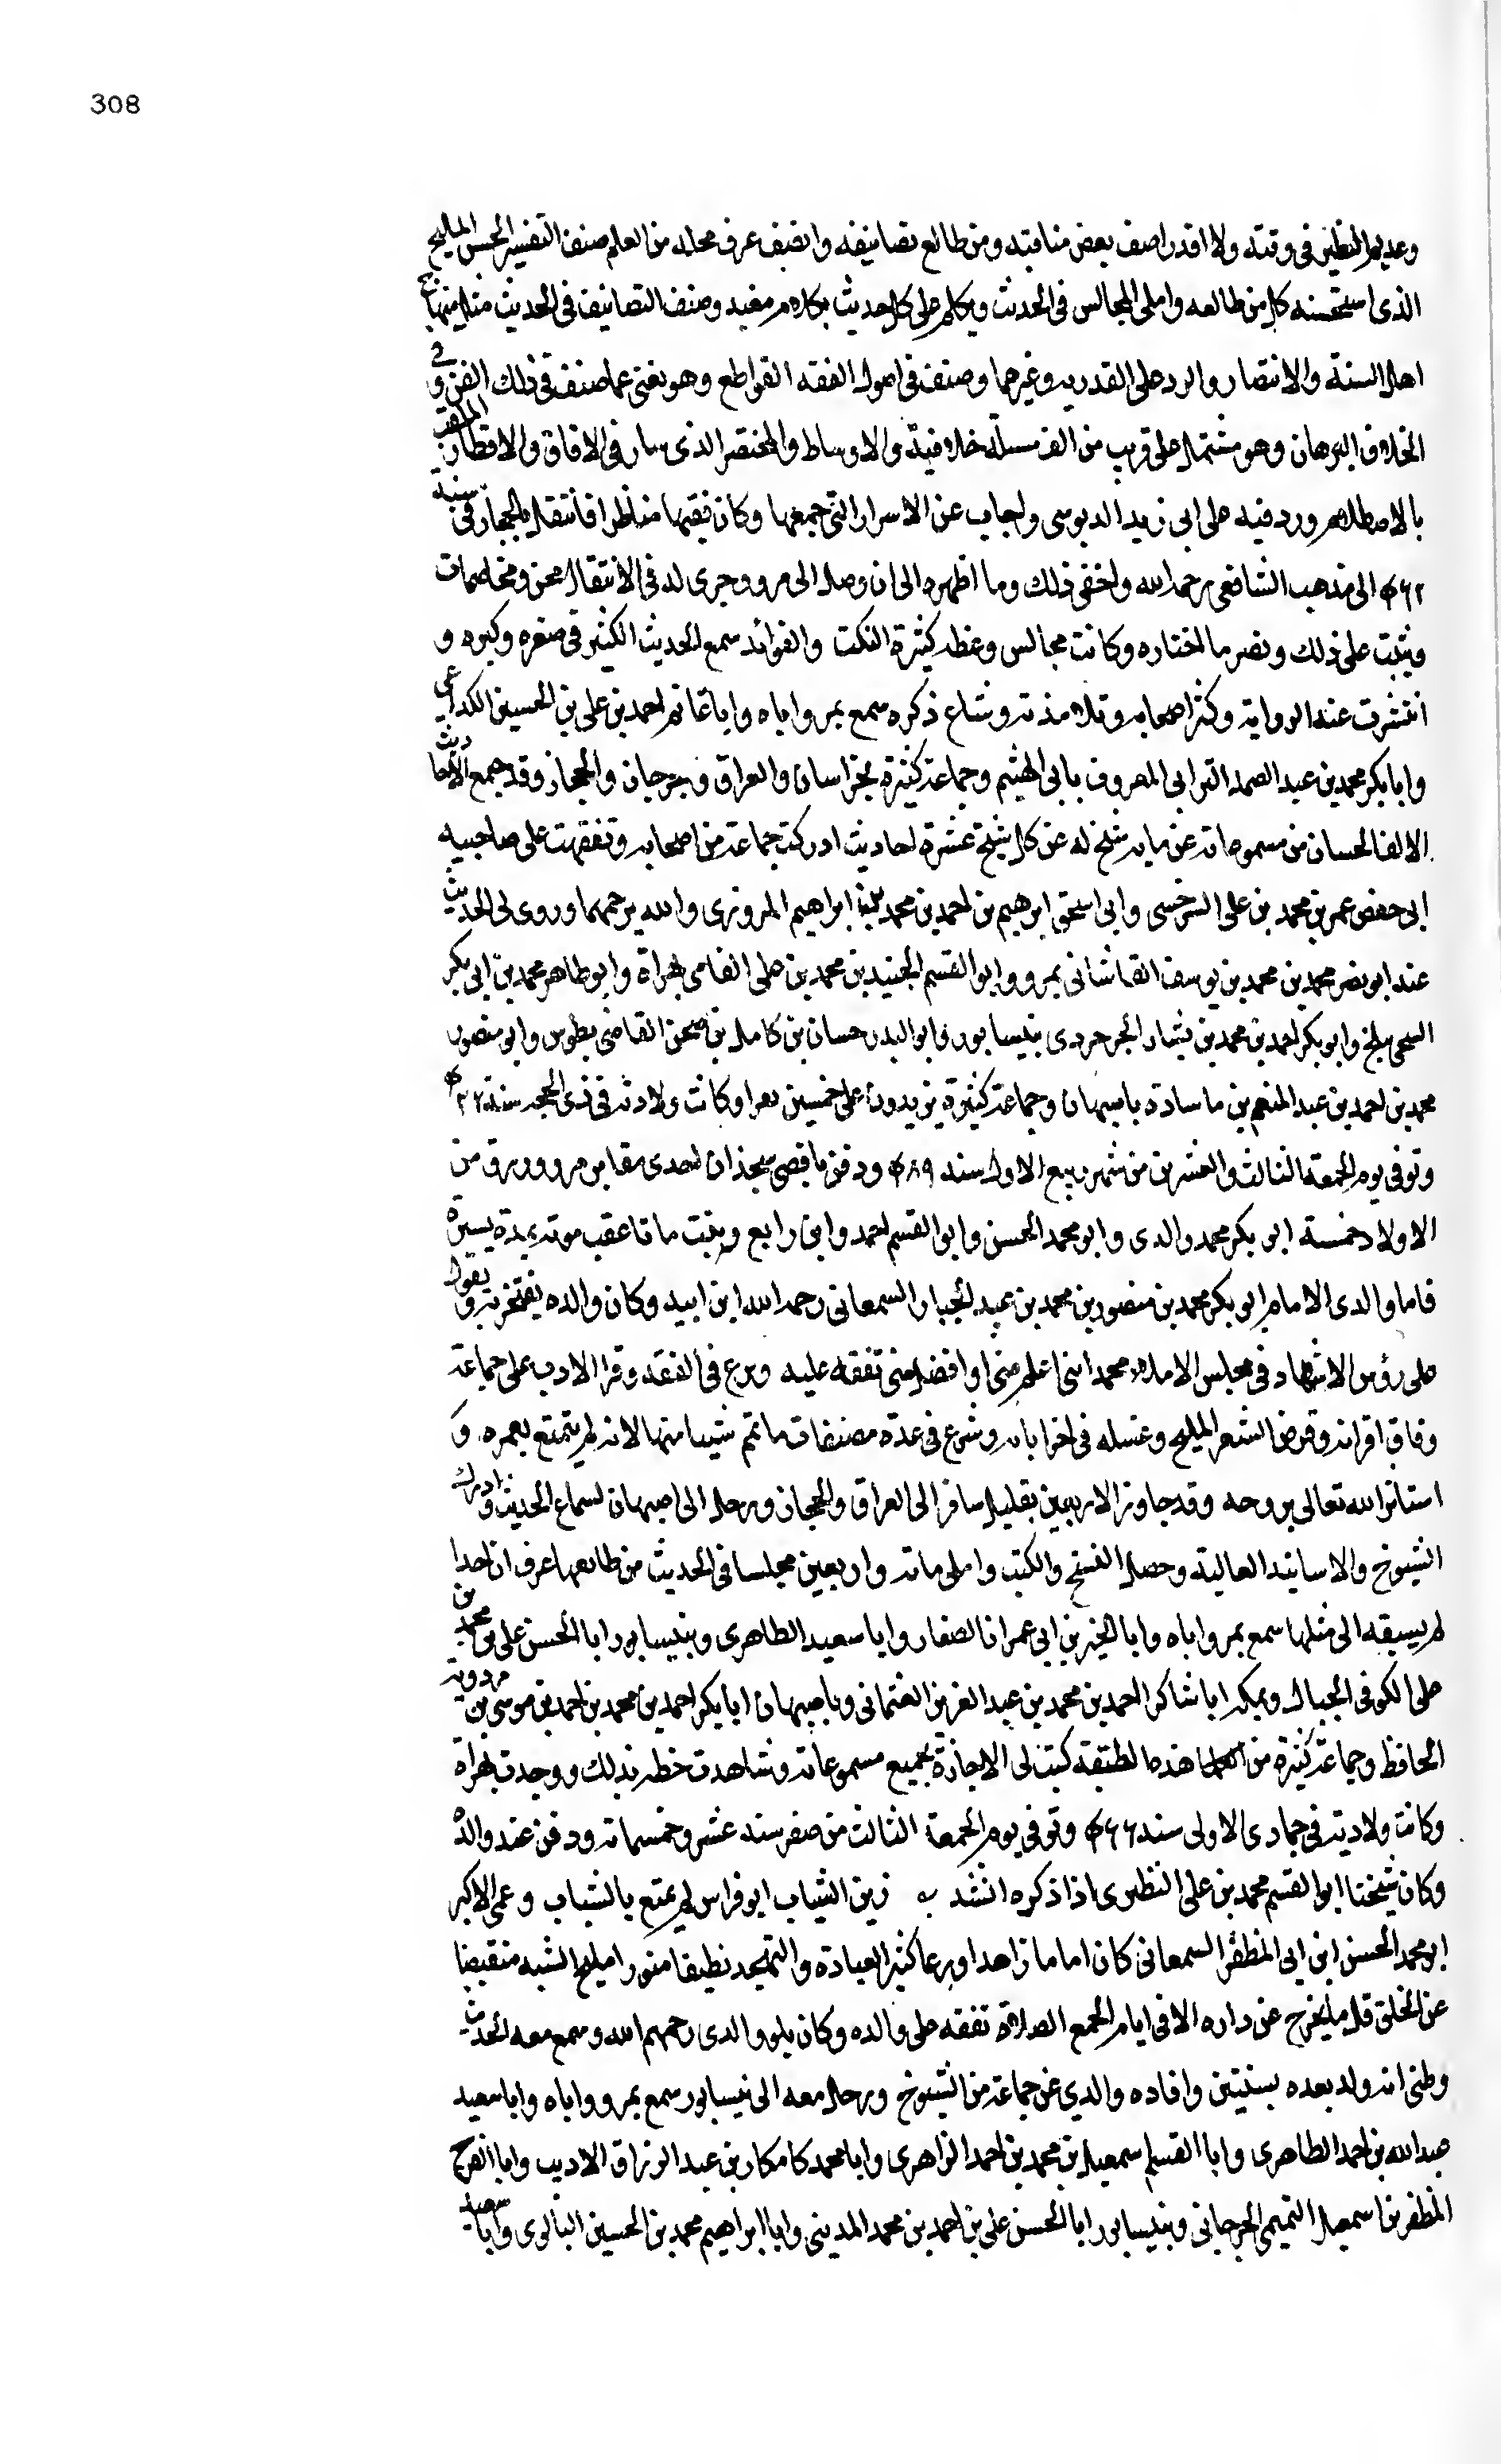 308
وعديم النظير في وقته ولا اقدر اصف بعض مناقبه ومن طالع تصانيفه وانصف عرف محله من العلم صنف التفسير الحسن المليح
الذى استحسنه كل من طالعه واملى المجالس في الحديث وتكلم على كل حديث بكلام مفيد وصنف التصانيف في الحديث مثل منهاج
اهل السنة والانتصار والرد على القدريه وغيرهما وصنف في اصول الفقه القواطع وهو يغنى عما صنف في ذلك الفن وفي
الخلاف البرهان وهو مشتمل على قريب من الف مسئلة خلافية والاوساط والمختصر الذى سار في الافاق والاقطار الملقب
بالاصطلام ورد فيه على ابى زيد الدبوسى واجاب عن الاسرار التى جمعها وكان فقيها مناظرا فانتقل بالحجاز في سنة
٤٦٢ الى مذهب الشافعى رحمه الله واخفى ذلك وما اظهره الى ان وصل الى مرو وجرى له في الانتقال محن ومخاصمات
وثبت على ذلك ونصر ما اختاره وكانت مجالس وعظه كثيرة النكت والفوائد سمع الحديث الكثير في صغره وكبره و
انتشرت عنه الرواية وكثر اصحابه وتلامذته وشاع ذكره سمع بمرو اباه وابا غانم احمد بن على بن الحسين الكراعى
وابا بكر محمد بن عبد الصمد الترابى المعروف بابى الهيثم وجماعة كثيرة بخراسان والعراق وجرجان والحجاز وقد جمع الاحاديث
الالف الحسان من مسموعاته عن مايه شيخ له عن كل شيخ عشرة احاديث ادركت جماعة من اصحابه وتفقهت على صاحبيه
ابى حفص عمر بن محمد بن على السرخسى وابى اسحق ابرهيم بن احمد بن محمد ابراهيم المروزى والله يرحمهما وروى لى الحديث
عنه ابو نصر محمد بن محمد بن يوسف القاشانى بمرو وابو القسم الجنيد بن محمد بن على القاى بهراة وابو طاهر محمد بن ابى بكر
السنجى ببلخ وابو بكر احمد بن محمد بن بشار الخرجردى بنيسابور وابو البدر حسان بن كامل بن صخر القاضى بطوس وابو منصور
محمد بن احمد بن عبد المنعم بن ماشادة باصبهان وجماعة كثيرة يزيدون على خمسين نفرا وكانت ولادته في ذى الحجه سنة ٤٢٦
وتوفي يوم الجمعة الثالث والعشرين من شهر ربيع الاول سنه ٤٨٩ ودفن باقصى سجذان احدى مقابر مرو ورزق من
الاولاد خمسة ابو بكر محمد والدى وابو محمد الحسن وابو القسم احمد وابن رابع وبنت ماتا عقب موته بمدة يسيرة
فاما والدى الامام ابو بكر محمد بن منصور بن محمد بن عبد الجبار السمعانى رحمه الله ابن ابيه وكان والده يفتخر به ويقول
على رؤس الاشهاد في مجلس الاملاء محمد ابنى اعلم منى وافضل منى تفقه عليه وبرع في الفقه وقرا الادب على جماعة
وفاق اقرانه وقرض الشعر المليح وغسله في اخر ايامه وشرع في عدة مصنفات ما تمم شيئا منها لانه لم يتمتع بعمره و
استاثر الله تعالى بروحه وقد جاوز الاربعين بقليل سافر الى العراق والحجاز ورحل الى اصبهان لسماع الحديث وادرك
الشيوخ والاسانيد العالية وحصل النسخ والكتب واملى ماته واربعين مجلسا في الحديث من طالعها عرف ان احدا
لم يسبقه الى مثلها سمع بمرو اباه وابا الخير بن ابى عمران الصفار وابا سعيد الطاهرى وبنيسابور ابا الحسن على بن محمد بن
على الكوفى الجبال وبمكه ابا شاكر احمد بن محمد بن عبد العزيز العثمانى وباصبهان ابا بكر احمد بن محمد بن احمد بن موسى بن مردويه
الحافظ وجماعة كثيرة من هذه الطبقة كتب لى الاجازة بجميع مسموعاته وشاهدت خطه بذلك ووجدت بهراة
وكانت ولادته في جمادى الاولى سنه ٤٦٦ وتوفي يوم الجمعة الثالث من صفر سنه عشر وخمسماته ودفن عند والده
وكان شيخنا ابو القسم محمد بن على النطنزى اذا ذكره انشد زين الشباب ابو فراس لم يمتع بالشباب وعمى الاكبر
ابو محمد الحسن ابن ابى المظفر السمعانى كان اماما زاهدا ورعا كثير العبادة والتهجد نظيفا منورا مليح الشيبه منقبضا
عن الخلق قل ما يخرج عن داره الا في ايام الجمع الصلاة تفقه على والده وكان يلو والدى رحمهم الله وسمع معه الحديث
وظنى انه ولد بعده بسنتين وافاده والدى عن جماعة من الشيوخ ورحل معه الى نيسابور سمع بمرو واباه وابا سعيد
عبد الله بن احمد الطاهرى وابا القسم اسمعيل بن محمد بن احمد الزاهرى وابا محمد كامكار بن عبد الرزاق الاديب وابا الفرج
المظفر بن اسمعيل التميمى الجرجانى وبنيسابور ابا الحسن على بن احمد بن محمد المدينى وابا ابراهيم محمد بن الحسين البالوى وابا سعيد